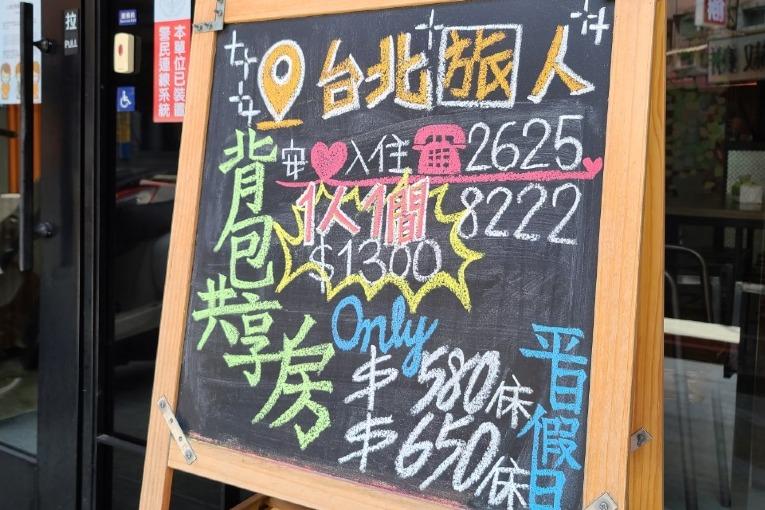 台北旅人
安入住☎2625
8222
伙僴
$1300
背包
共享房
Only
$580/床
$650/床
平日
假日
拉
PULL
本單位已裝置
警民連線系統